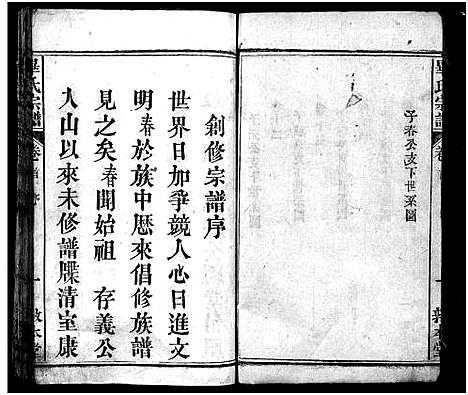 畢氏宗譜
卷
子春公支下世系圖
一
敦本堂
創修宗譜序
世界日加爭競人心日進文
明春於族中歷來倡修族譜
見之矣春聞始祖 存義公
入山以來未修譜牒清室康
畢氏宗譜
卷首
一
敦本堂